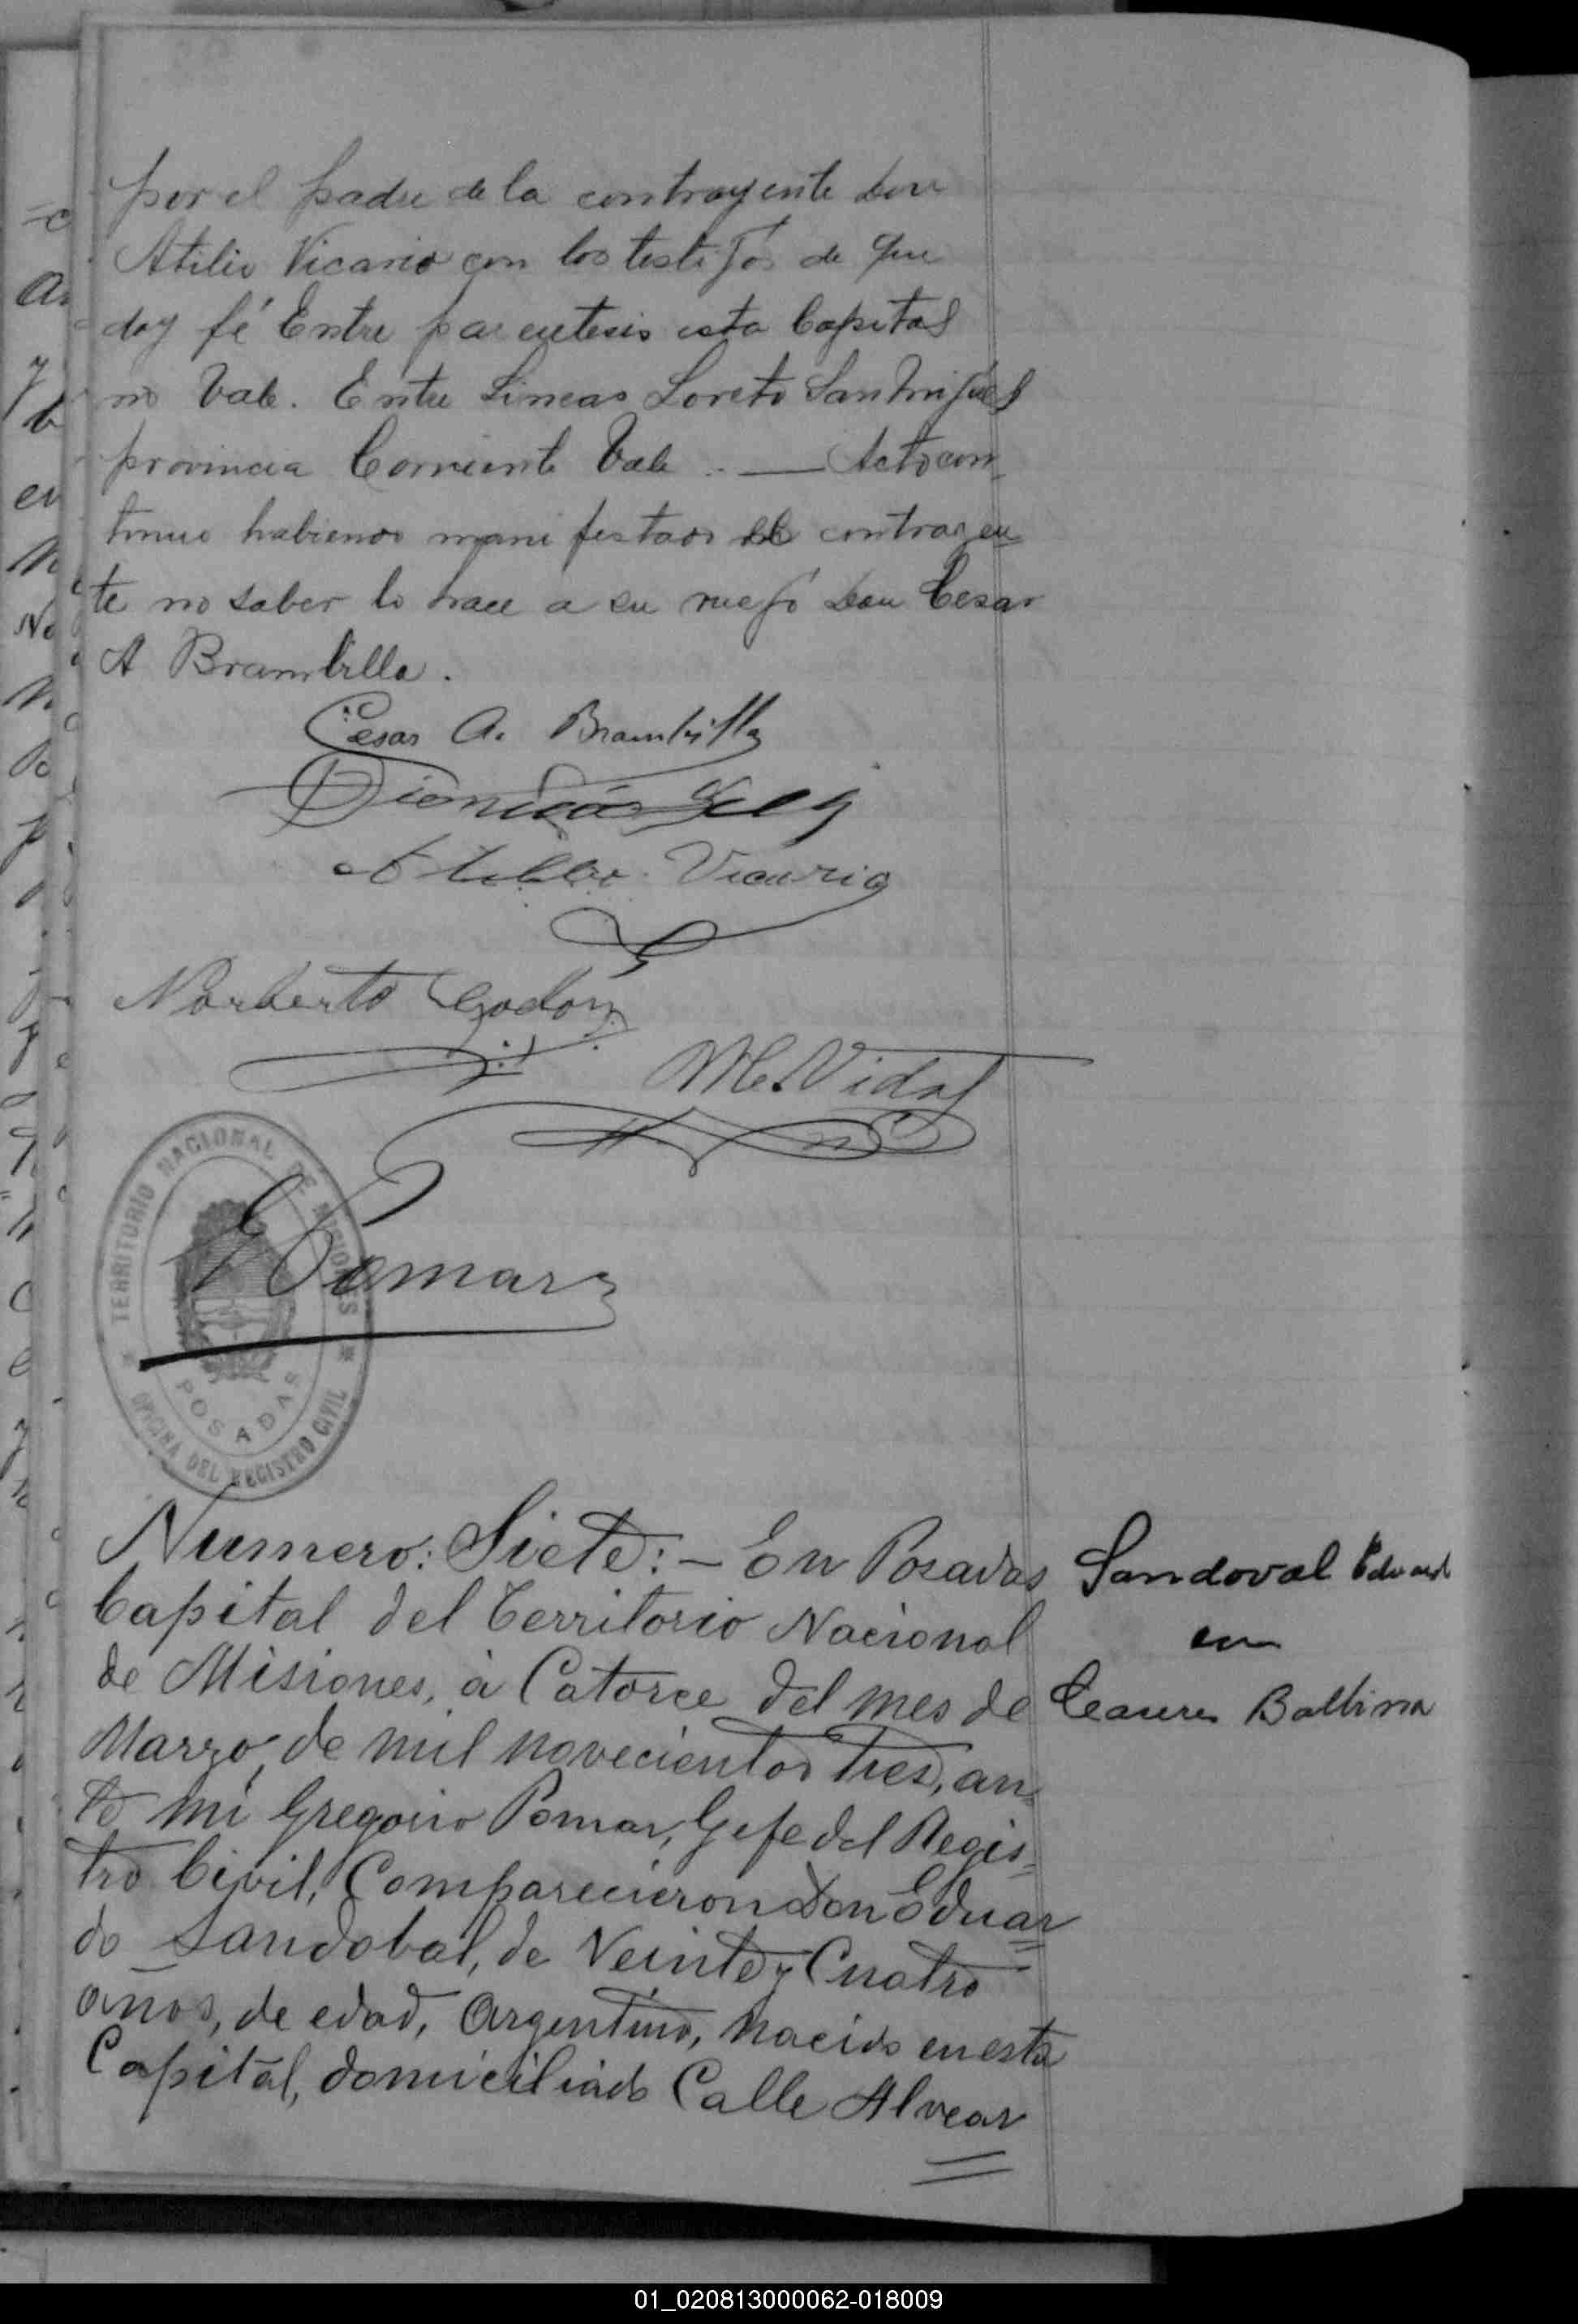 por el padre de la contrayente Don
Atilio Vicario con los testigos de que
doy fé Entre parentesis esta Capital
no Vale. Entre Lineas Loreto San Miguel
provincia Corriente Vale . — Acto con
tinuo habiendo manifestado el contrayen=
te no saber lo hace a su ruego Don Cesar
A Brambilla.
Cesar A. Brambilla
Atilio Vicario
Norberto Godoy
M. Vidal
TERRITORIO NACIONAL DE MISIONES
POSADAS
OFICINA DEL REGISTRO CIVIL
G Pomar
Numero: Siete: — En Posadas
Capital del Territorio Nacional
de Misiones, à Catorce del mes de
Marzo, de mil novecientos tres, an=
te mí Gregorio Pomar, Gefe del Regis=
tro Civil, Comparecieron Don Eduar=
do Sandobal, de Veinte y Cuatro
años, de edad, Argentino, nacido en esta
Capital, domiciliado Calle Alvear
Sandoval Eduardo
con
Balbina
01_020813000062-018009